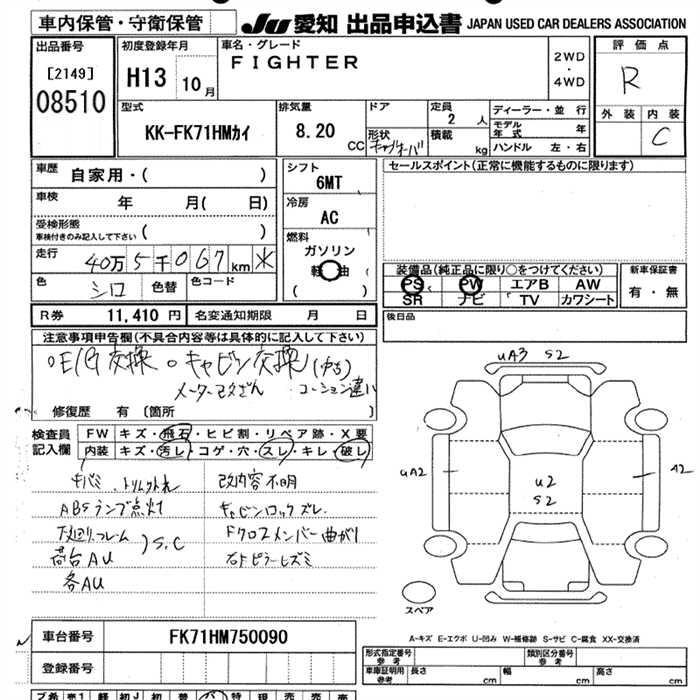 車内保管・守衛保管
JU 愛知 出品申込書 JAPAN USED CAR DEALERS ASSOCIATION
出品番号
[2149]
08510
初度登録年月
H13 10月
車名・グレード
FIGHTER
2WD
・
4WD
評価点
R
外装 内装
C
型式
KK-FK71HMカイ
排気量
8.20
CC
ドア
形状
キャブオーバ
定員
2 人
積載
kg
ディーラー・並行
モデル年式 年
ハンドル 左・右
車歴 自家用・( )
車検 年 月( 日)
受検形態
車検付きのみ記入して下さい ( )
走行 40万5千067km
色 シロ 色替 色コード
シフト
6MT
冷房
AC
燃料
ガソリン
軽油
( )
セールスポイント(正常に機能するものに限ります)
装備品(純正品に限り○をつけてください)
PS PW エアB AW
SR ナビ TV カワシート
新車保証書
有・無
R券 11,410円 名変通知期限 月 日
後日品
注意事項申告欄(不具合内容等は具体的に記入して下さい)
○E/G交換 ○キャビン交換
メーター改ざん コーション違い
修復歴 有〔箇所 〕
検査員記入欄
FW キズ・飛石・ヒビ割・リペア跡・X要
内装 キズ・汚レ・コゲ・穴・スレ・キレ・破レ
キバミ
ABSランプ点灯
下廻リ、フレーム
荷台AU
各AU
S,C
改内容不明
キャビンロックズレ
Fクロスメンバー曲がり
右Fピラーヒズミ
uA3 S2
uA2
u2
S2
A2
スペア
A-キズ E-エクボ U-凹み W-補修跡 S-サビ C-腐食 XX-交換済
車台番号 FK71HM750090
登録番号
型式指定番号 参考
類別区分番号 参考
車庫証明用 参考 長さ cm 幅 cm 高さ cm